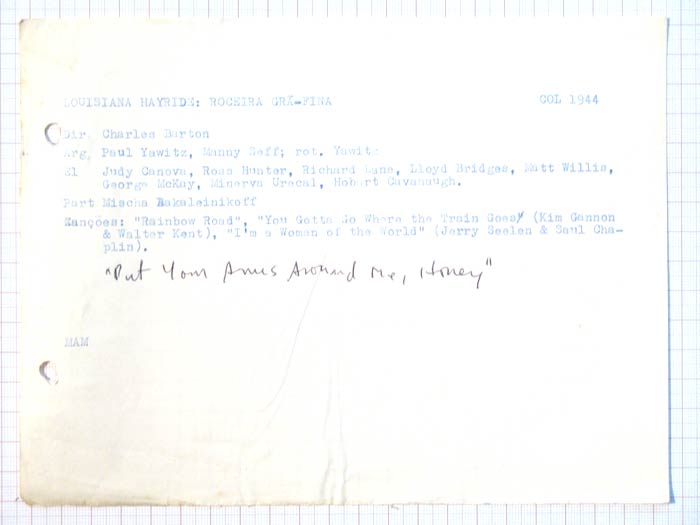 LOUISIANA HAYRIDE: ROCEIRA GRÃ-FINA COL 1944
Dir. Charles Barton
Arg. Paul Yawitz, Manny Seff; rot. Yawitz
El Judy Canova, Ross Hunter, Richard Lane, Lloyd Bridges, Matt Willis,
George McKay, Minerva Urecal, Hobart Cavanaugh.
Part Mischa Bakaleinikoff
Canções: "Rainbow Road", "You Gotta Go Where the Train Goes" (Kim Gannon
& Walter Kent), "I'm a Woman of the World" (Jerry Seelen & Saul Cha-
plin).
"Put Your Arms Around Me, Honey"
MAM